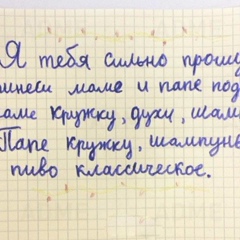 Я тебя сильно прошу
маме и папе
кружку, духи,
Папе кружку, шампунь
пиво классическое.